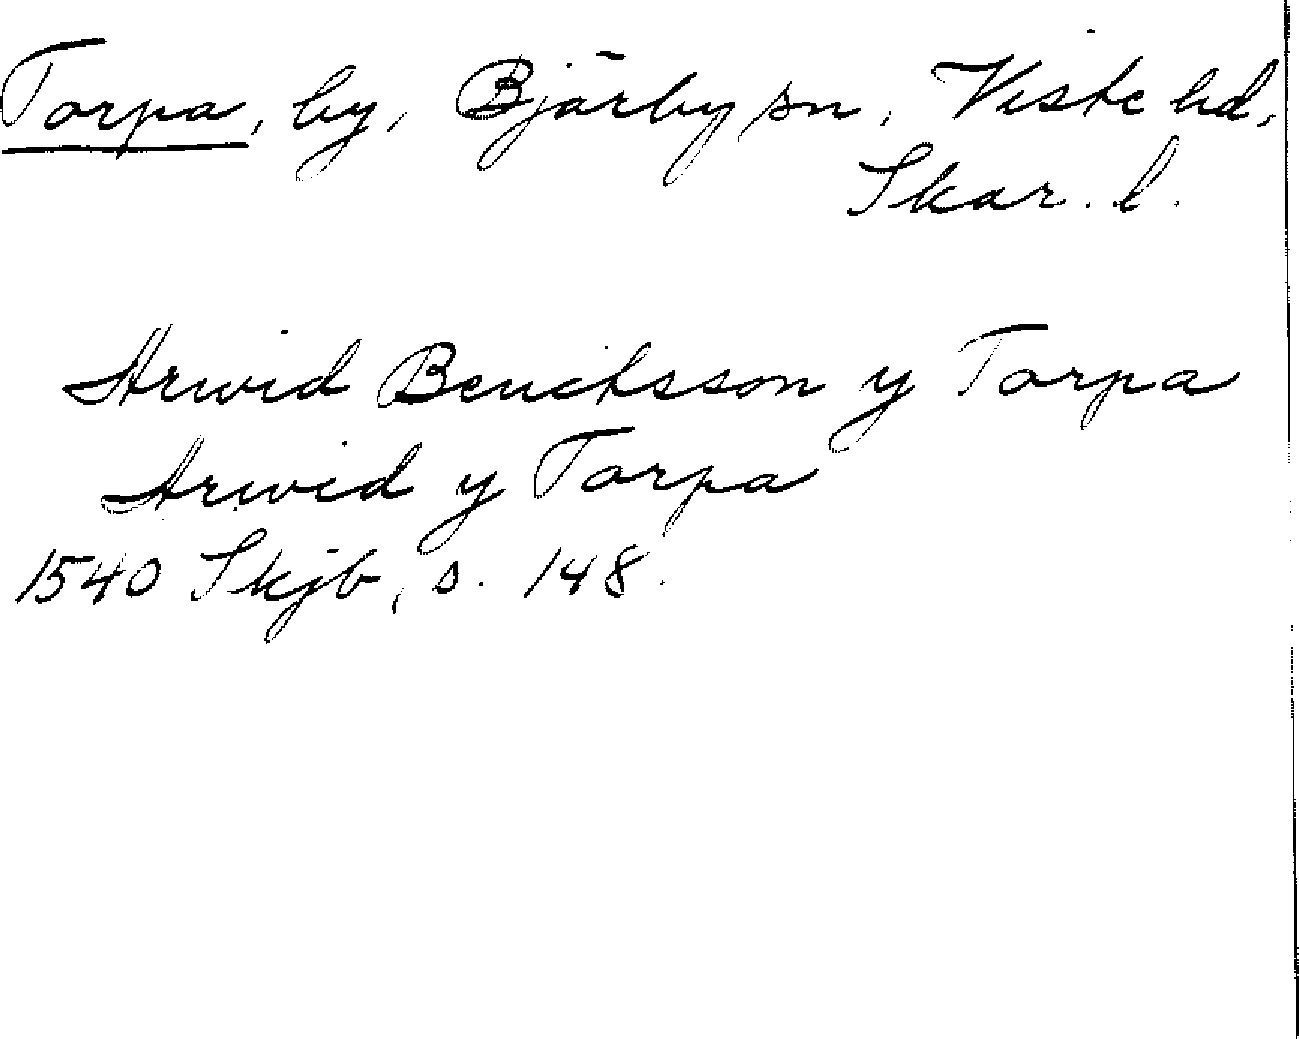 Torpa, by, Bjärby sn, Viste hd,
Skar. l.
Arwid Benctsson y Torpa
Arwid y Torpa
1540 Skjb, s. 148.